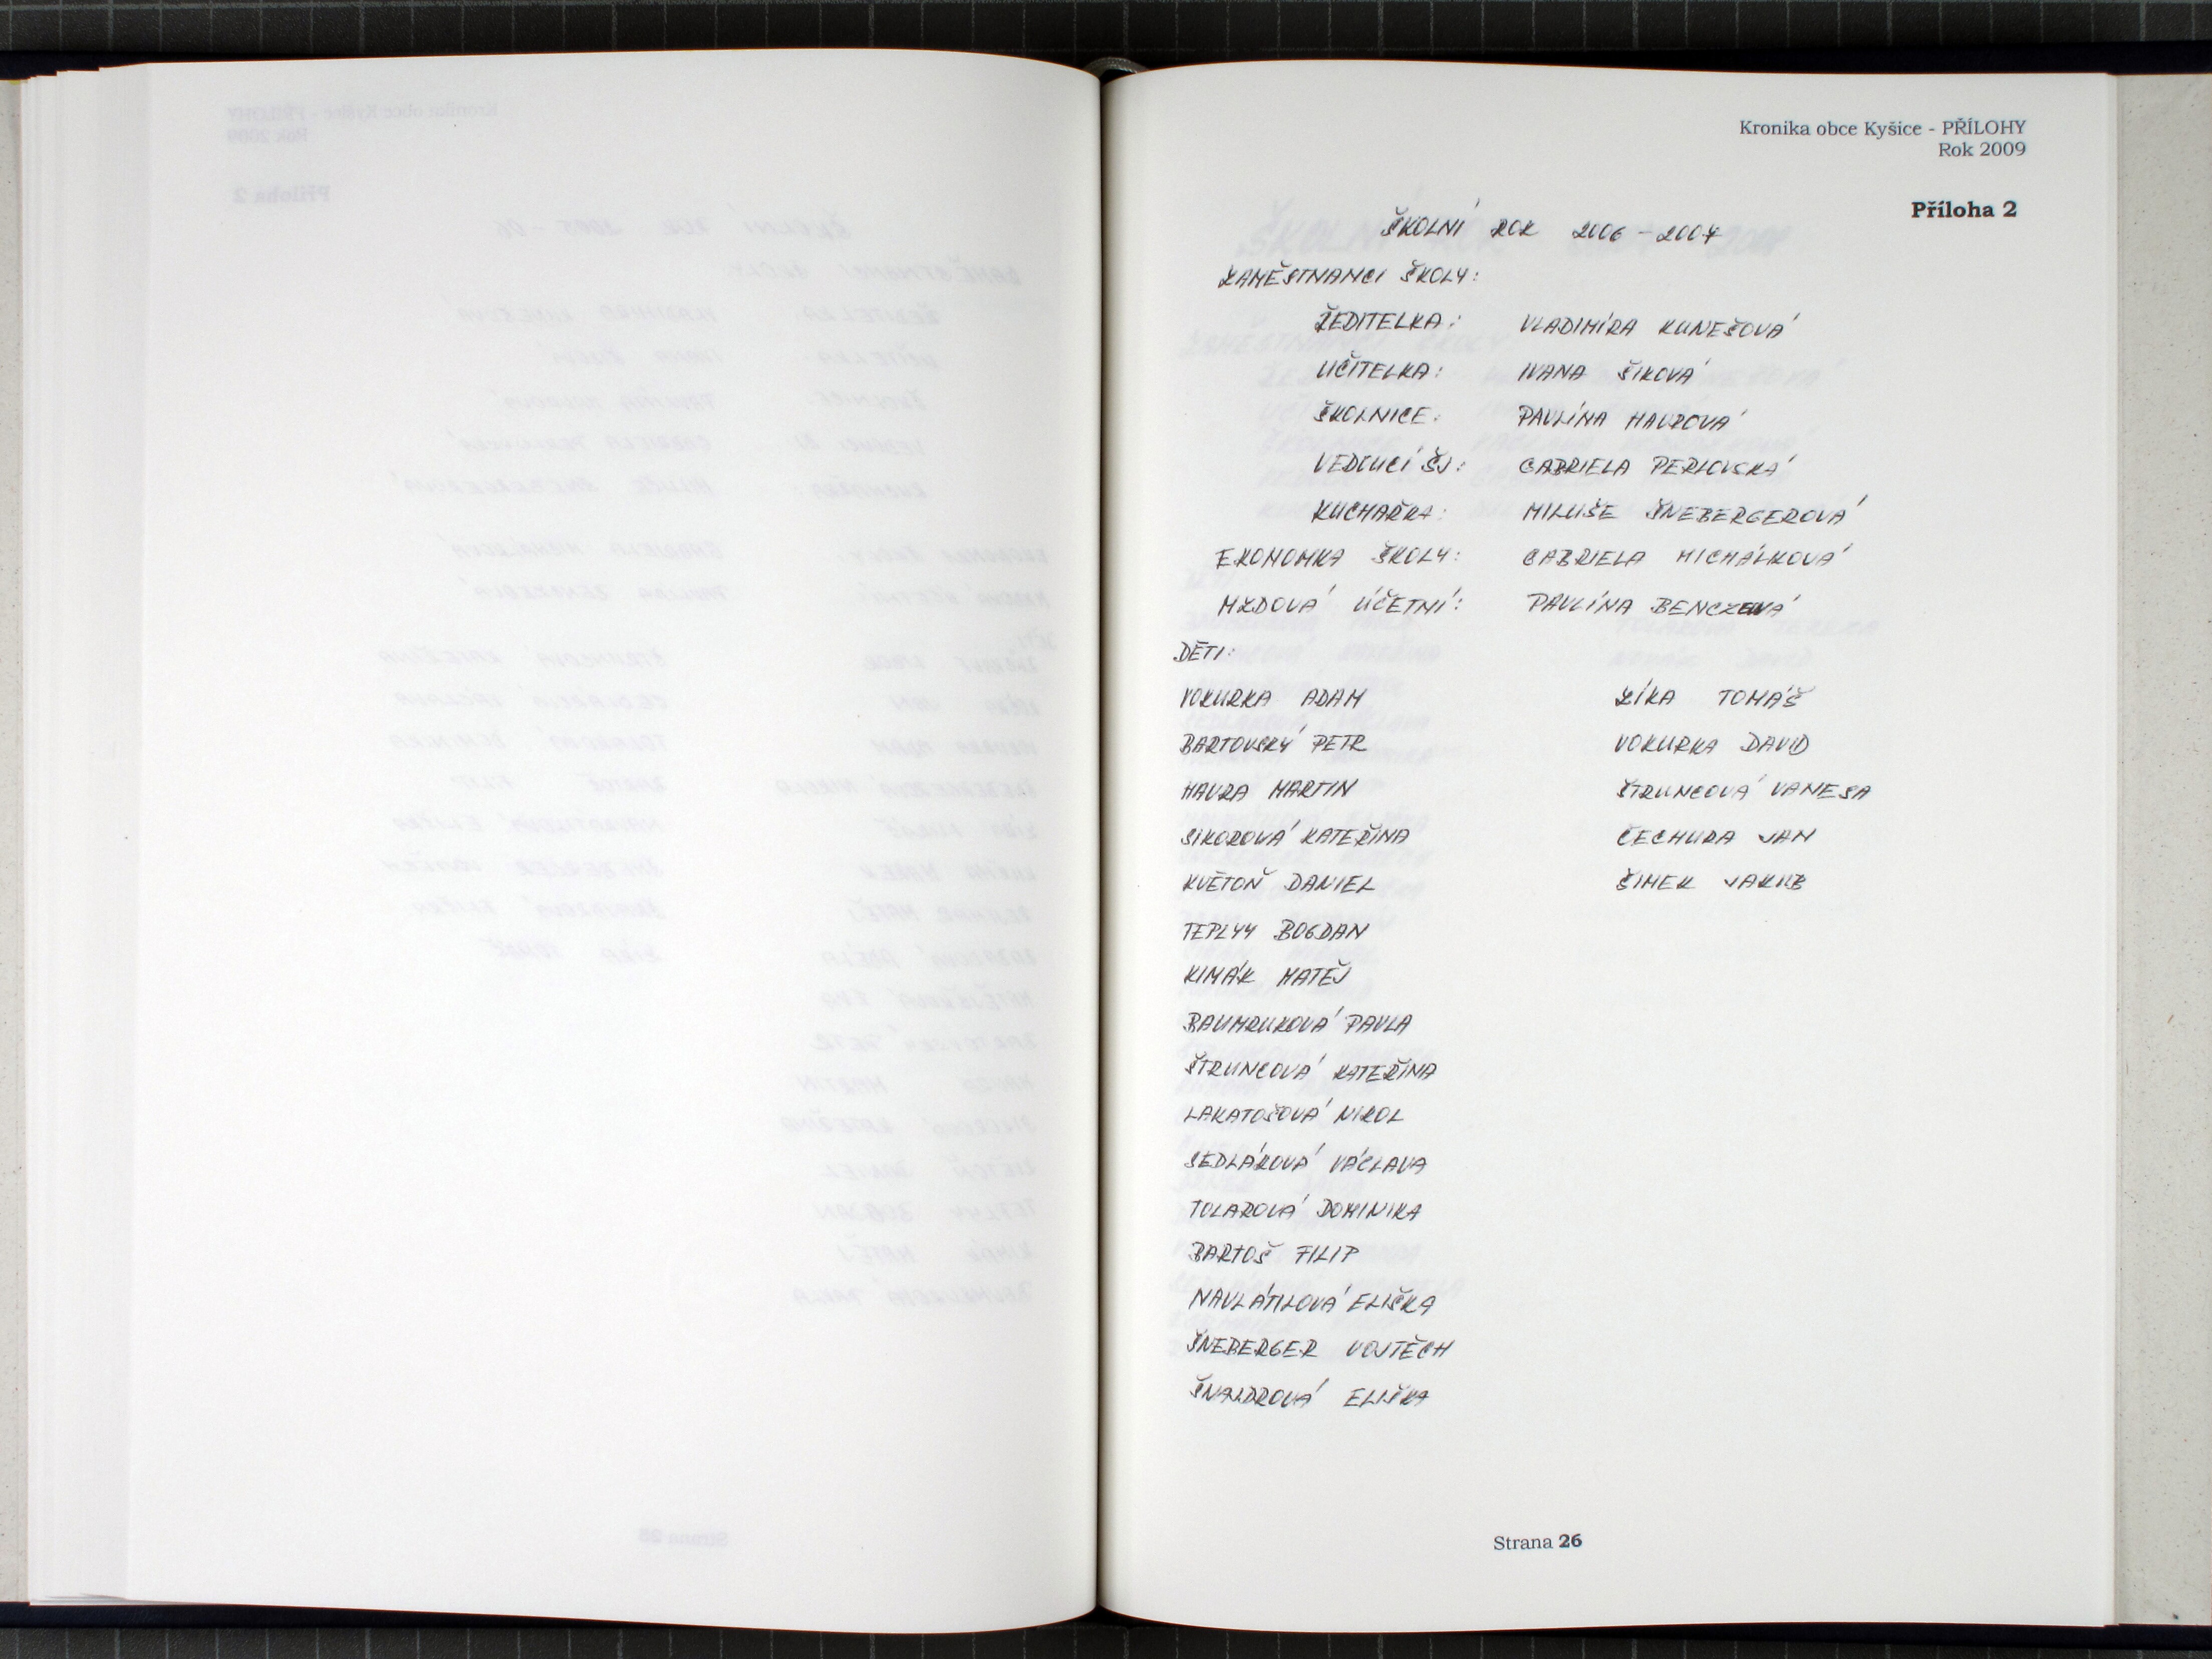 Kronika obce Kyšice - PŘÍLOHY
Rok 2009
Příloha 2
ŠKOLNÍ ROK 2006 - 2007
ZAMĚSTNANCI ŠKOLY:
ŘEDITELKA: VLADIMÍRA KUNEŠOVÁ
UČITELKA: IVANA ŠIKOVÁ
ŠKOLNICE: PAVLÍNA HAVROVÁ
VEDOUCÍ ŠJ: GABRIELA PERLOVSKÁ
KUCHAŘKA: MILUŠE ŠNEBERGEROVÁ
EKONOMKA ŠKOLY: GABRIELA MICHÁLKOVÁ
MZDOVÁ ÚČETNÍ: PAVLÍNA
DĚTI:
VOKURKA ADAM ZÍKA TOMÁŠ
BARTOVSKÝ PETR VOKURKA DAVID
HAVRA MARTIN ŠTRUNCOVÁ VANESA
SIKOROVÁ KATEŘINA ČECHURA JAN
KVĚTOŇ DANIEL ŠIMEK JAKUB
TEPLYY BOGDAN
KIMÁK MATĚJ
BAUMRUKOVÁ PAVLA
ŠTRUNCOVÁ KATEŘINA
LAKATOŠOVÁ NIKOL
SEDLÁKOVÁ VÁCLAVA
TOLAROVÁ DOMINIKA
BARTOŠ FILIP
NAVLÁTILOVÁ ELIŠKA
ŠNEBERGER VOJTĚCH
ŠNAJDROVÁ ELIŠKA
Strana 26